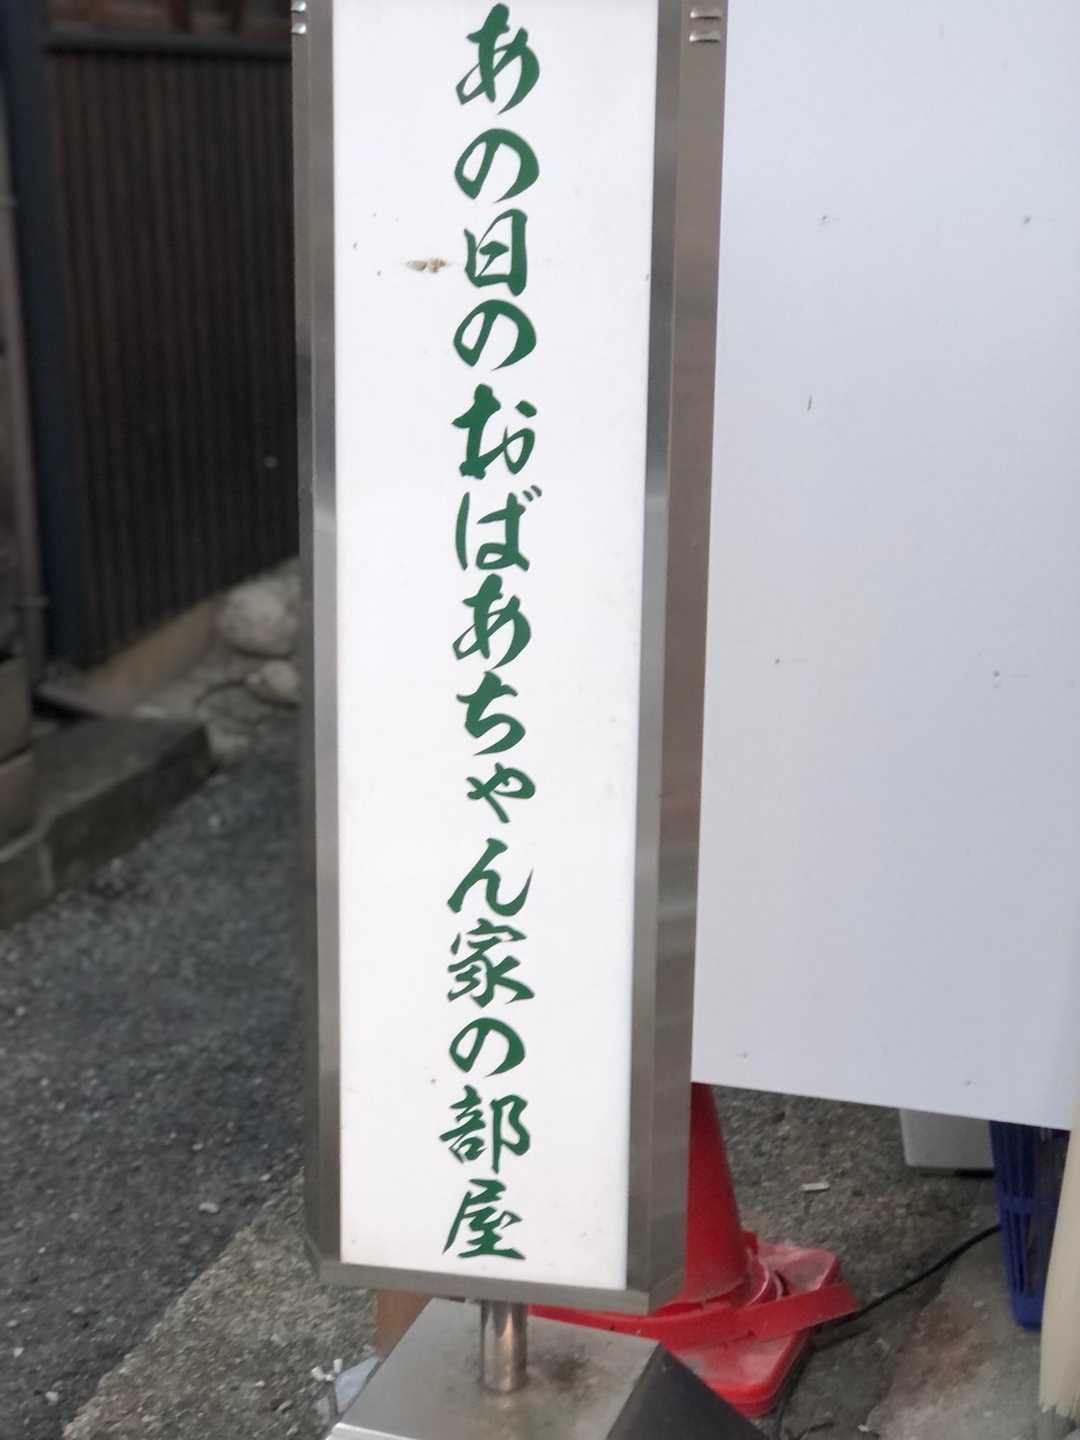 あの日のおばあちゃん家の部屋